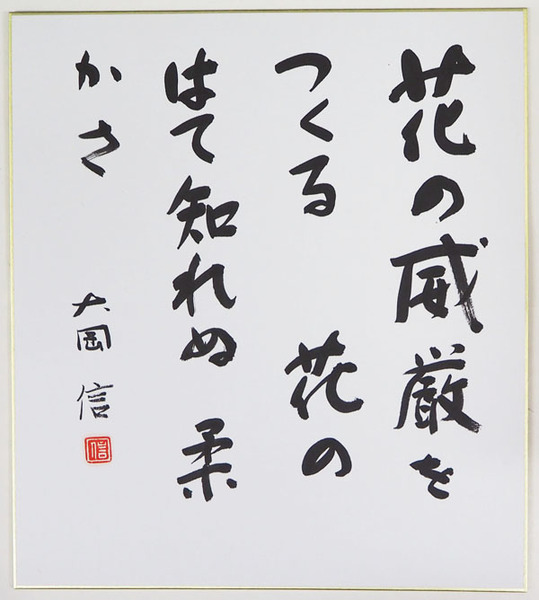 花の威厳を
つくる 花の
はて知れぬ 柔
かさ
大岡 信
信